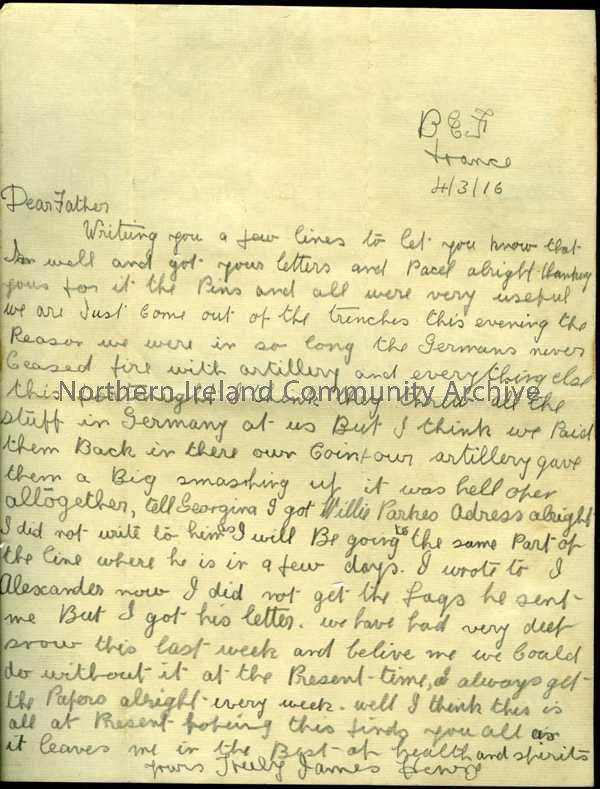 B E F
France
4/3/16
Dear Father
Writing you a few lines to let you know that
Im well and got your letters and Pacel alright thankyou
yous for it the Pins and all were very useful
we are Just Come out of the trenches this evening the
Reason we were in so long the Germans never
Ceased fire with artillery and everything else
this fortnight I think they threw all the
Northern Ireland Community Archive
stuff in Germany at us But I think we Paid
them Back in there own Coin, our artillery gave
them a Big smashing up it was hell open
altogether, tell Georgina I got Willie Parkes Adress alright
I did not write to him as I will Be going to the same Part of
the line where he is in a few days. I wrote to J
Alexander now I did not get the fags he sent
me But I got his letter. we have had very deep
snow this last week and belive me we Could
do without it at the Present time, I always get
the Papers alright every week. well I think this is
all at Present hopeing this finds you all as
it leaves me in the Best of health and spirits
yours Truly James Henry